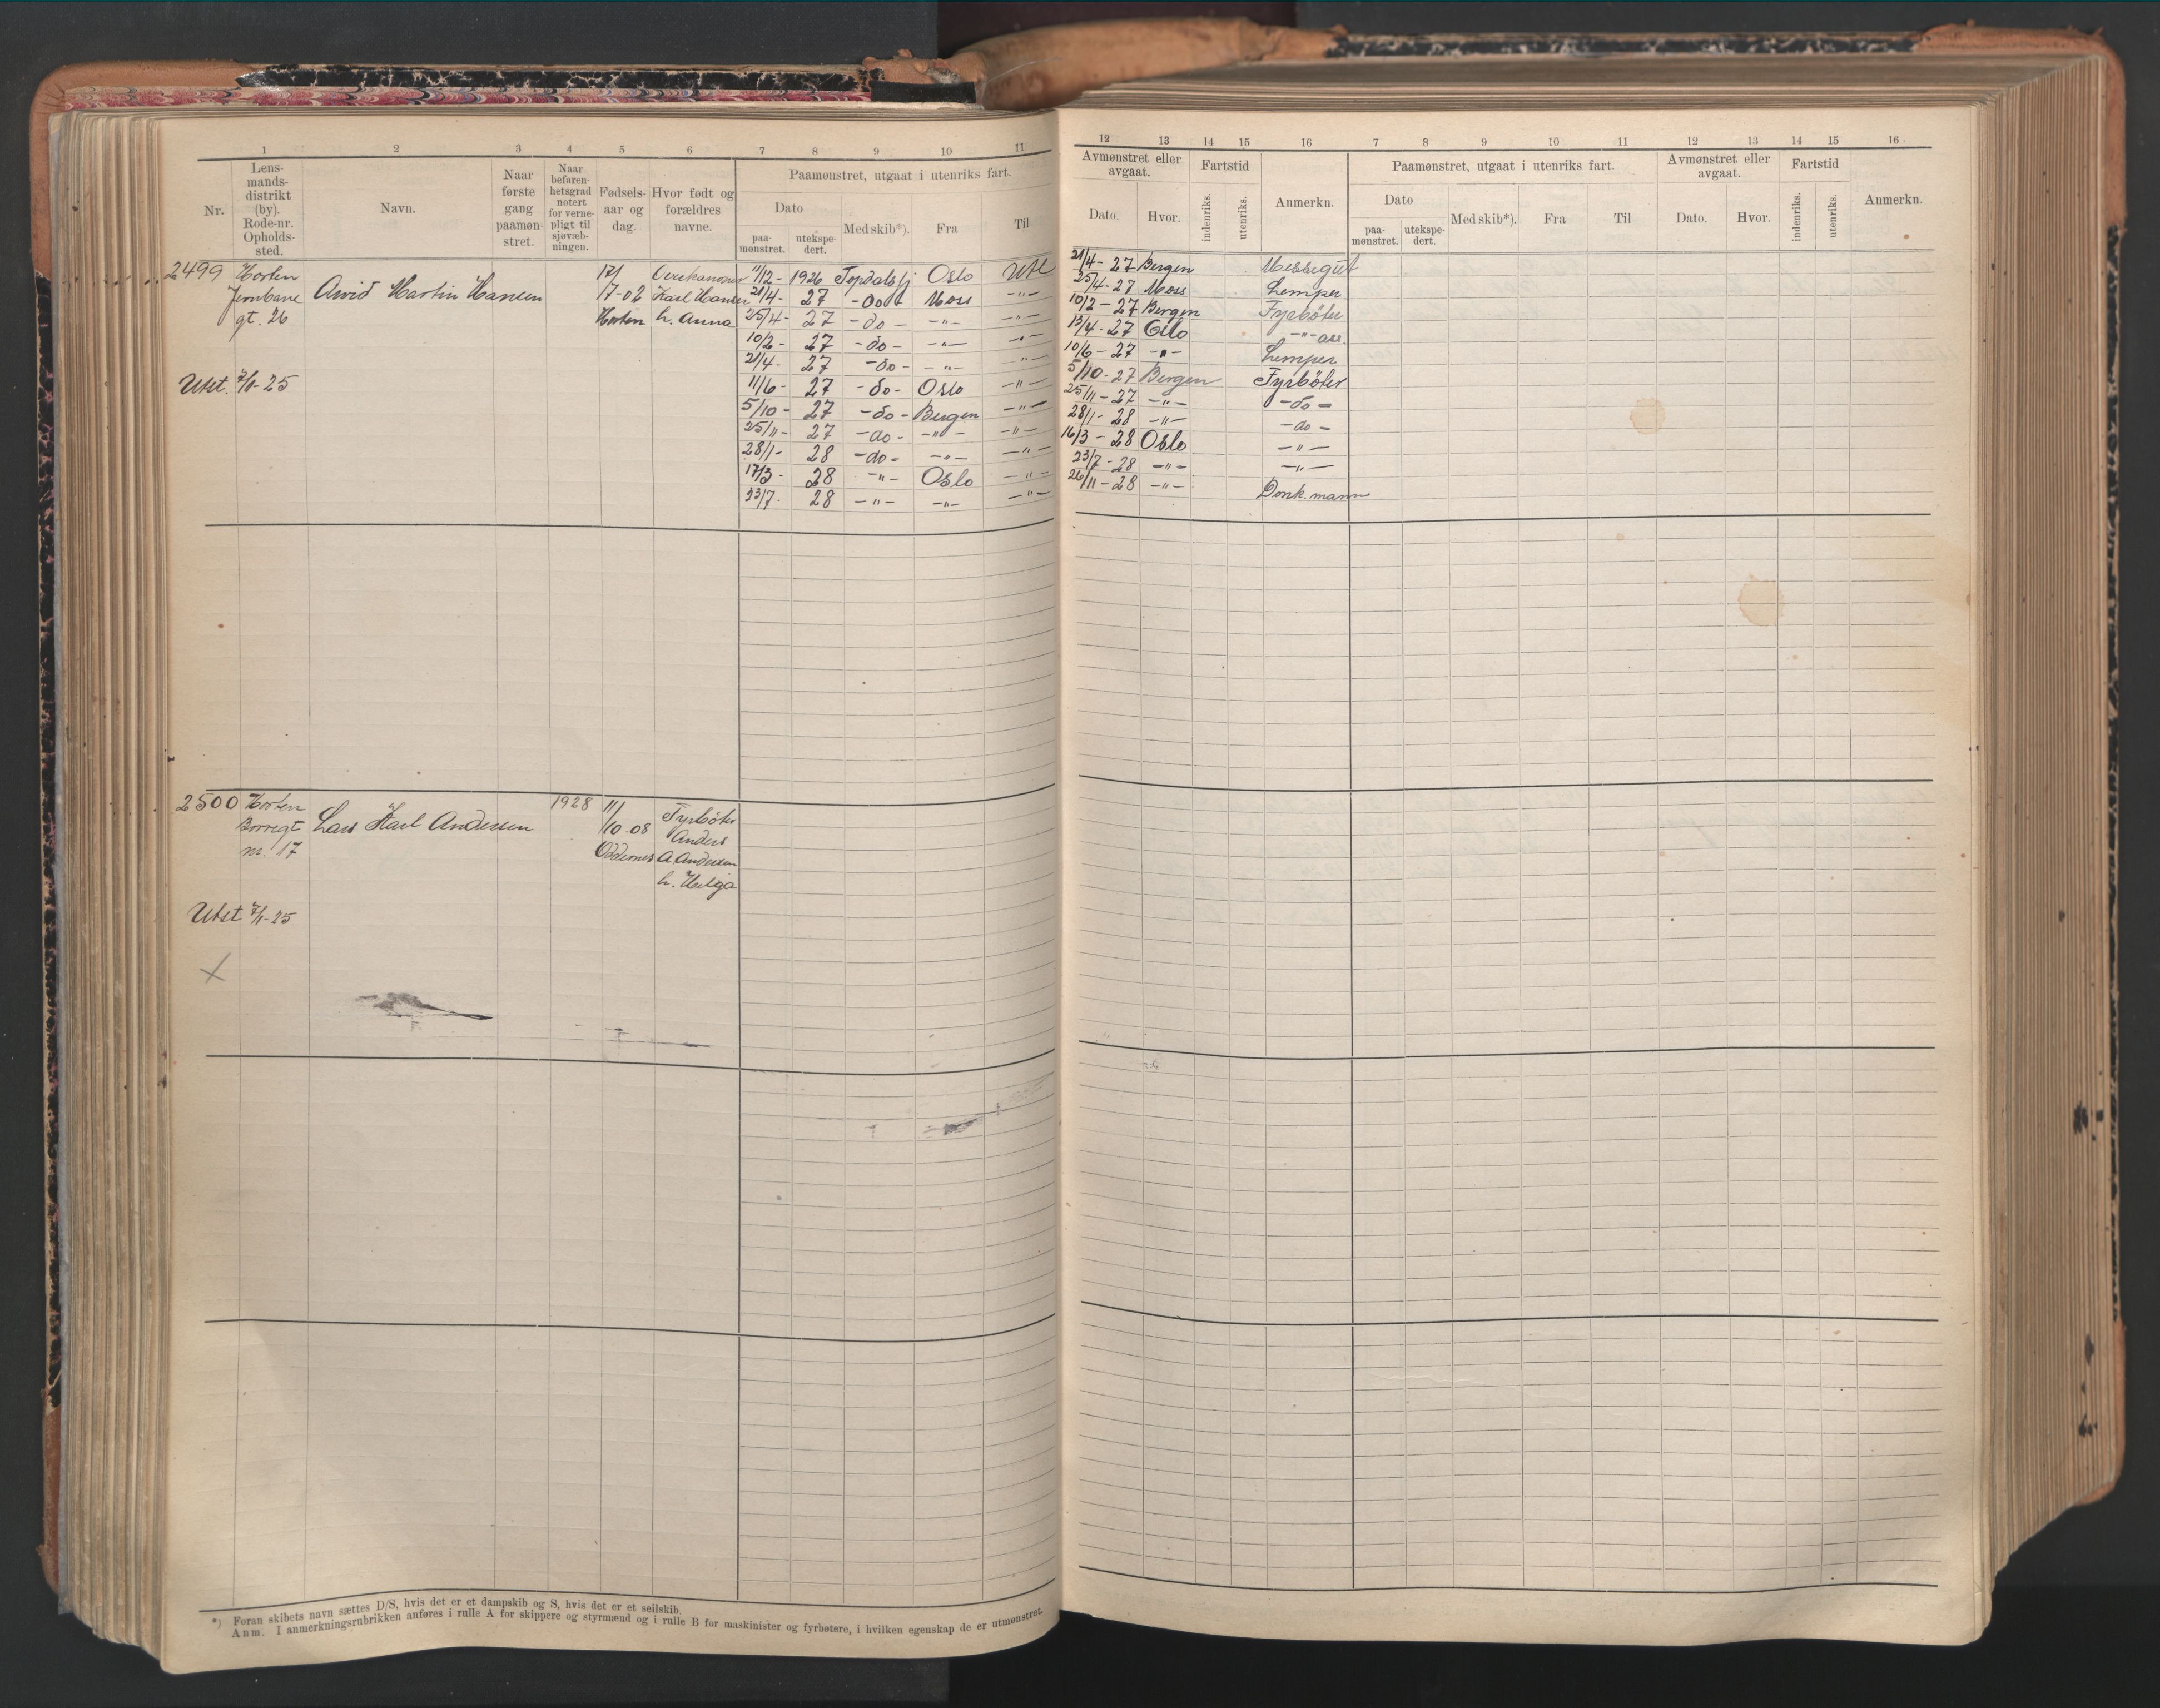 1 2 3 4 5 6 7 8 9 10 11
Nr. Lens-mands-distrikt (by). Rode-nr. Opholds-sted. Navn. Naar første gang paamøn-stret. Naar befaren-hetsgrad notert for verne-pligt til sjøvæb-ningen. Fødsels-aar og dag. Hvor født og forældres navne. Paamønstret, utgaat i utenriks fart.
Dato paa-mønstret. utekspe-dert. Med skib*). Fra Til
2499 Horten 17/ 11/12 - 1926 Topdalsfj Oslo Utl
Jernbane Arvid Martin Hansen 7-02 Karl Hansen 21/4 - 27 - do - Moss - " -
gt. 26 Horten h. Anna 25/4 - 27 - do - - " - - " -
10/2 - 27 - do - - " - - " -
21/4 - 27 - do - - " - - " -
Utst. 7/1-25 11/6 - 27 - do - Oslo - " -
5/10 - 27 - do - Bergen - " -
25/11 - 27 - do - - " - - " -
28/1 - 28 - do - - " - - " -
17/3 - 28 - " - Oslo - " -
23/7 - 28 - " - - " - - " -
2500 Horten 1928 11/ Fyrbøter
Borregt Lars Karl Andersen 10-08 Anders
nr. 17 Oddernes A Andersen
h. Helga
Utst 7/1-25
*) Foran skibets navn sættes D/S, hvis det er et dampskib og S, hvis det er et seilskib.
Anm. I anmerkningsrubrikken anføres i rulle A for skippere og styrmænd og i rulle B for maskinister og fyrbøtere, i hvilken egenskap de er utmønstret.
12 13 14 15 16 7 8 9 10 11 12 13 14 15 16
Avmønstret eller avgaat. Fartstid Anmerkn. Paamønstret, utgaat i utenriks fart. Avmønstret eller avgaat. Fartstid Anmerkn.
Dato. Hvor. indenriks. utenriks. Dato paa-mønstret. utekspe-dert. Med skib*). Fra Til Dato. Hvor. indenriks. utenriks.
21/4 - 27 Bergen Messegut
25/4 - 27 Moss Lemper
10/2 - 27 Bergen Fyrbøter
13/4 - 27 Oslo - " - ass.
10/6 - 27 - " - Lemper
5/10 - 27 Bergen Fyrbøter
25/11 - 27 - " - - do -
28/1 - 28 - " - - do -
16/3 - 28 Oslo - " -
23/7 - 28 - " - - " -
26/11 - 28 - " - Donk.mann